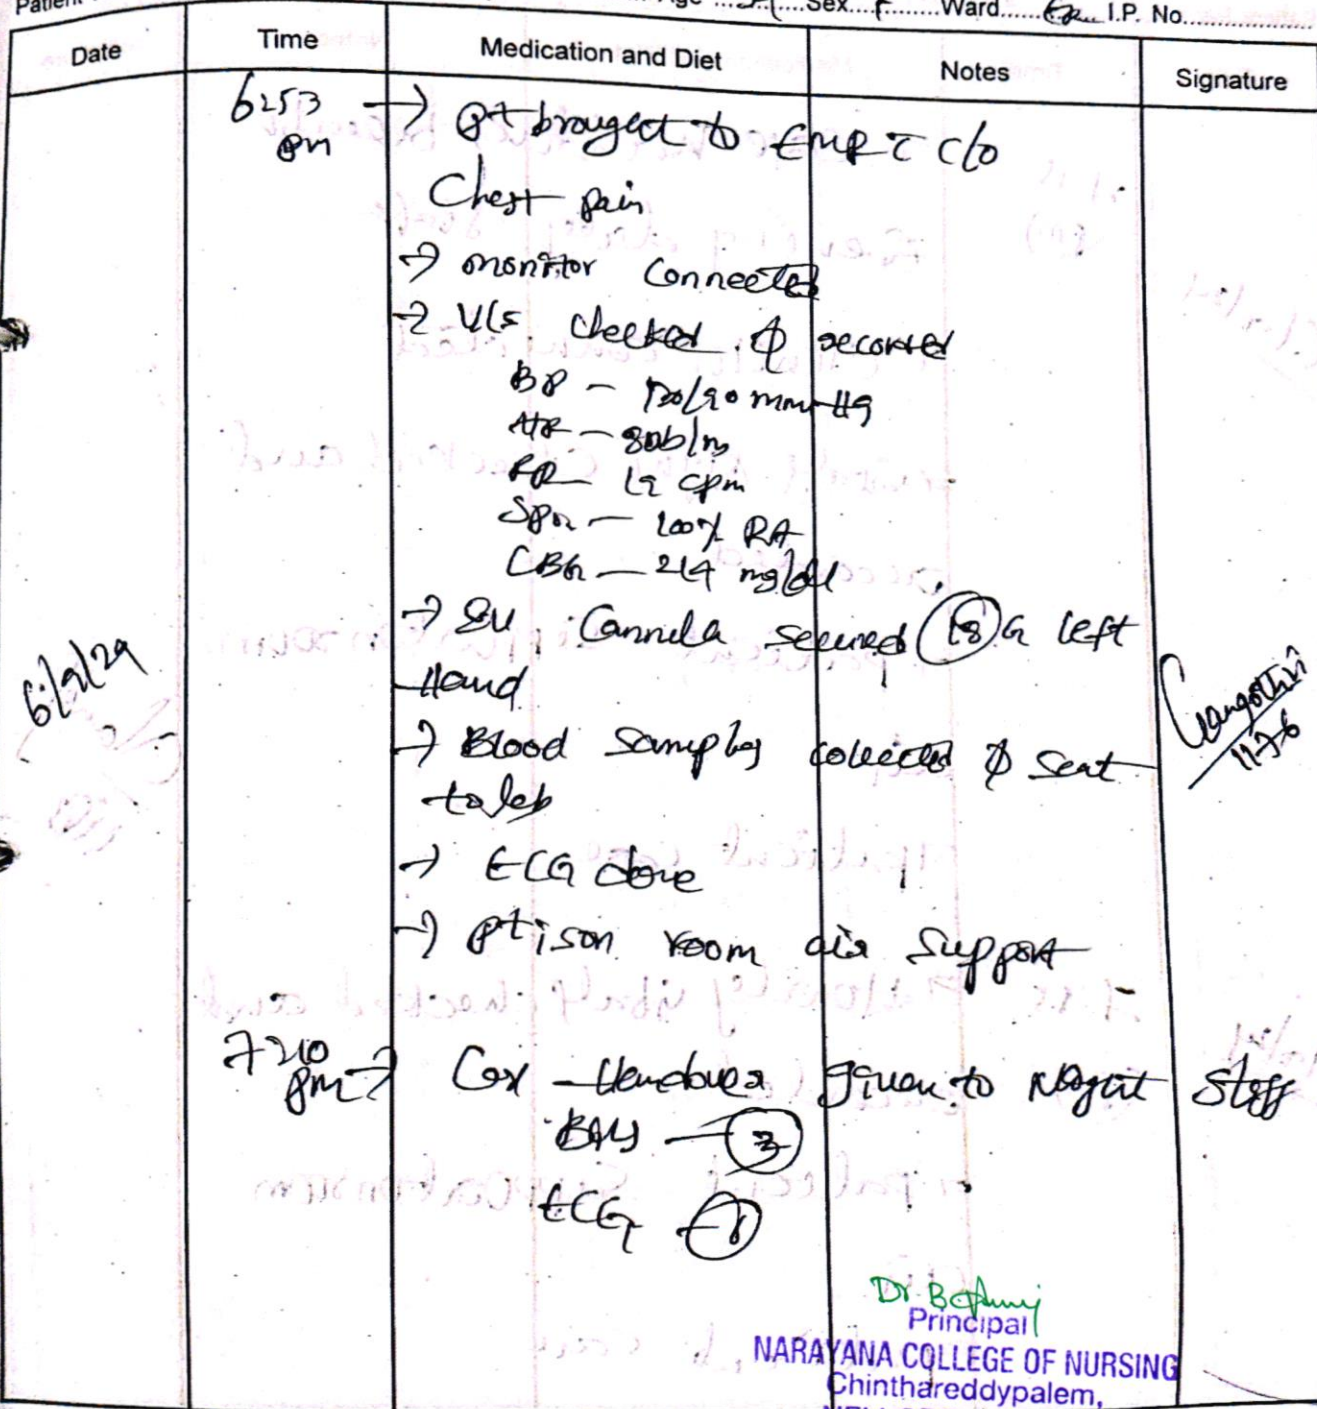 Patient
Age ... Sex....F........Ward......ER... I.P. No..............
Date Time Medication and Diet Notes Signature
6:53 pm → Pt brought to EMR c̄ c/o
Chest pain
→ monitor connected
→ V/s checked & recorded
BP - 120/90 mmHg
HR - 80b/m
RR - 19 cpm
SPO2 - 100% RA
CBG - 214 mg/dl
→ IV Cannula secured (18) G left
Hand
6/9/24
Gangothri
11736
→ Blood samples collected & sent
to lab
→ ECG done
→ Pt is on room air support
7:10 pm → Handover given to Night staff
ECG - 1
Dr. B
Principal
NARAYANA COLLEGE OF NURSING
Chinthareddypalem,